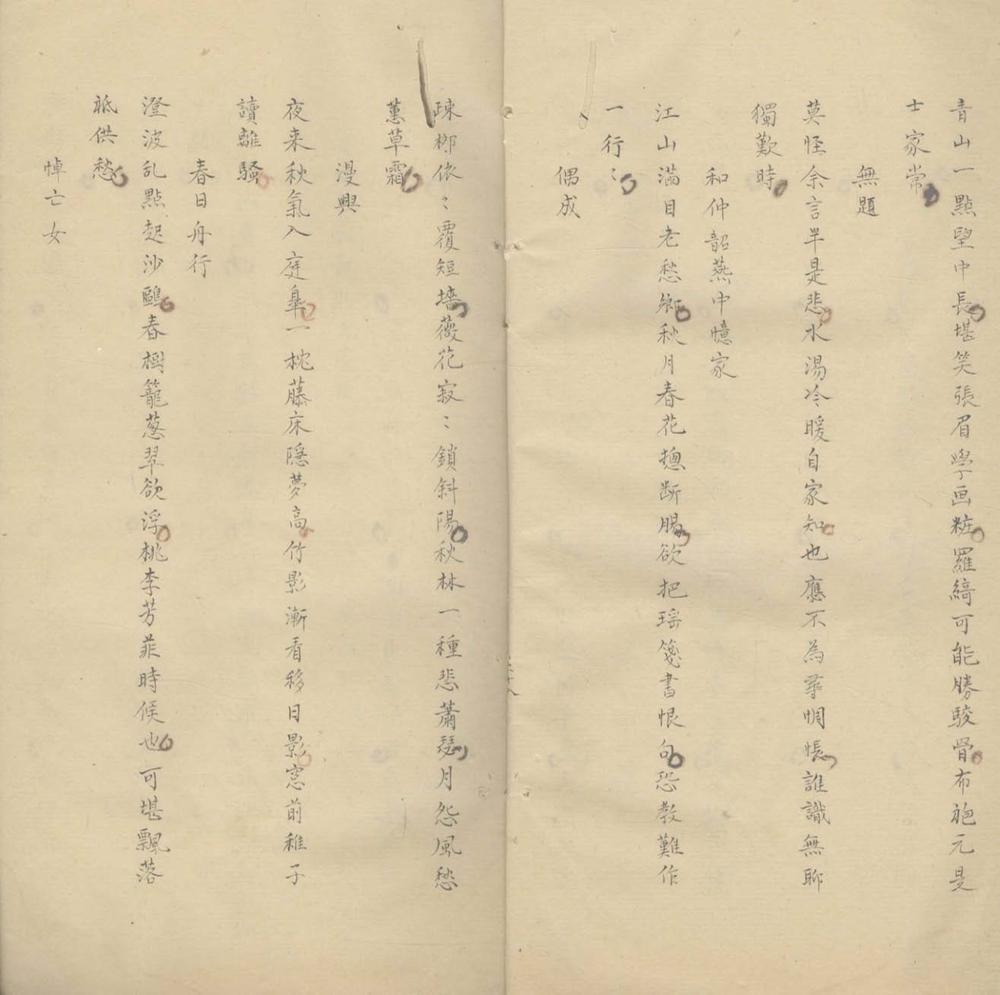 青山一點望中長堪笑張眉學画粧羅綺可能勝駿骨布袍元是
士家常
無題
莫怪余言半是悲水湯冷暖自家知也應不為尋惆悵誰識無聊
獨歎時
和仲韶燕中憶家
江山滿目老愁鄉秋月春花摠斷腸欲把瑶箋書恨句恐教難作
一行〻
偶成
疎柳依〻覆短墻薇花寂〻鎖斜陽秋林一種悲蕭瑟月怨風愁
蕙草霜
漫興
夜来秋氣入庭皐一枕藤床隱夢高竹影漸看移日影窓前稚子
讀離騷
春日舟行
澄波乱點起沙鷗春樹籠葱翠欲浮桃李芳菲時候也可堪飄落
祗供愁
悼亡女